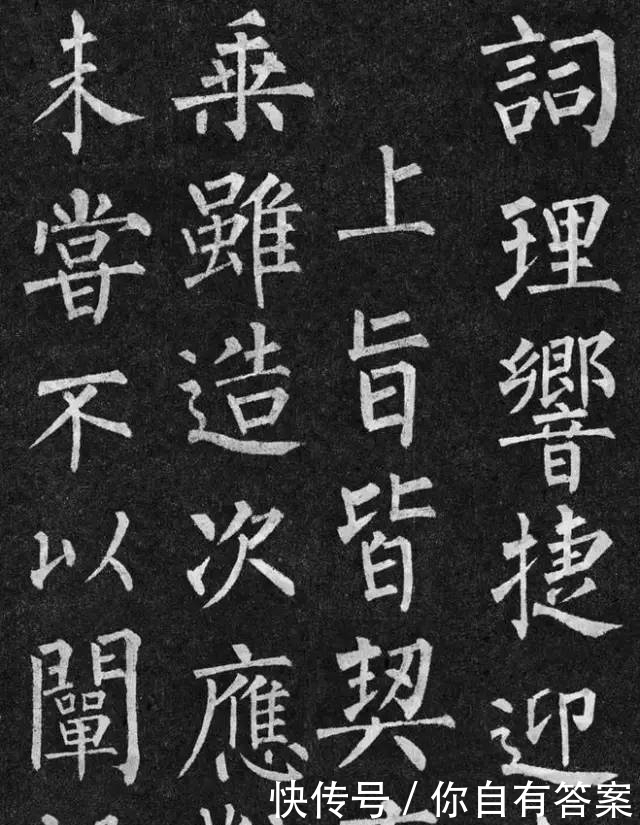 詞理響捷迎
上旨皆契
乘雖造次應
未嘗不以闡
快传号 / 你自有答案